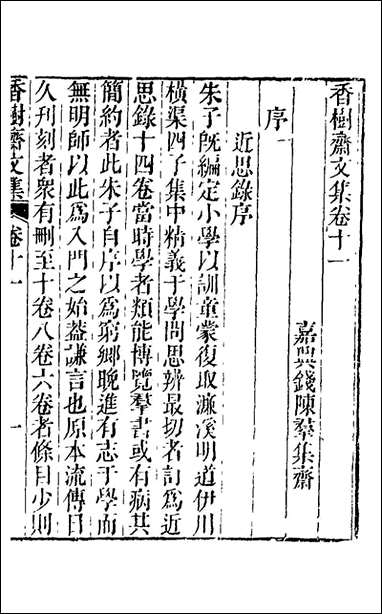 香樹齋文集卷十一
嘉興錢陳羣集齋
序一
近思錄序
朱子旣編定小學以訓童蒙復取濂溪明道伊川
橫渠四子集中精義于學問思辨最切者訂爲近
思錄十四卷當時學者類能博覽羣書或有病其
簡約者此朱子自序以爲窮鄉晚進有志于學而
無明師以此爲入門之始葢謙言也原本流傳日
久刊刻者衆有刪至十卷八卷六卷者條目少則
香樹齋文集
卷十一
一